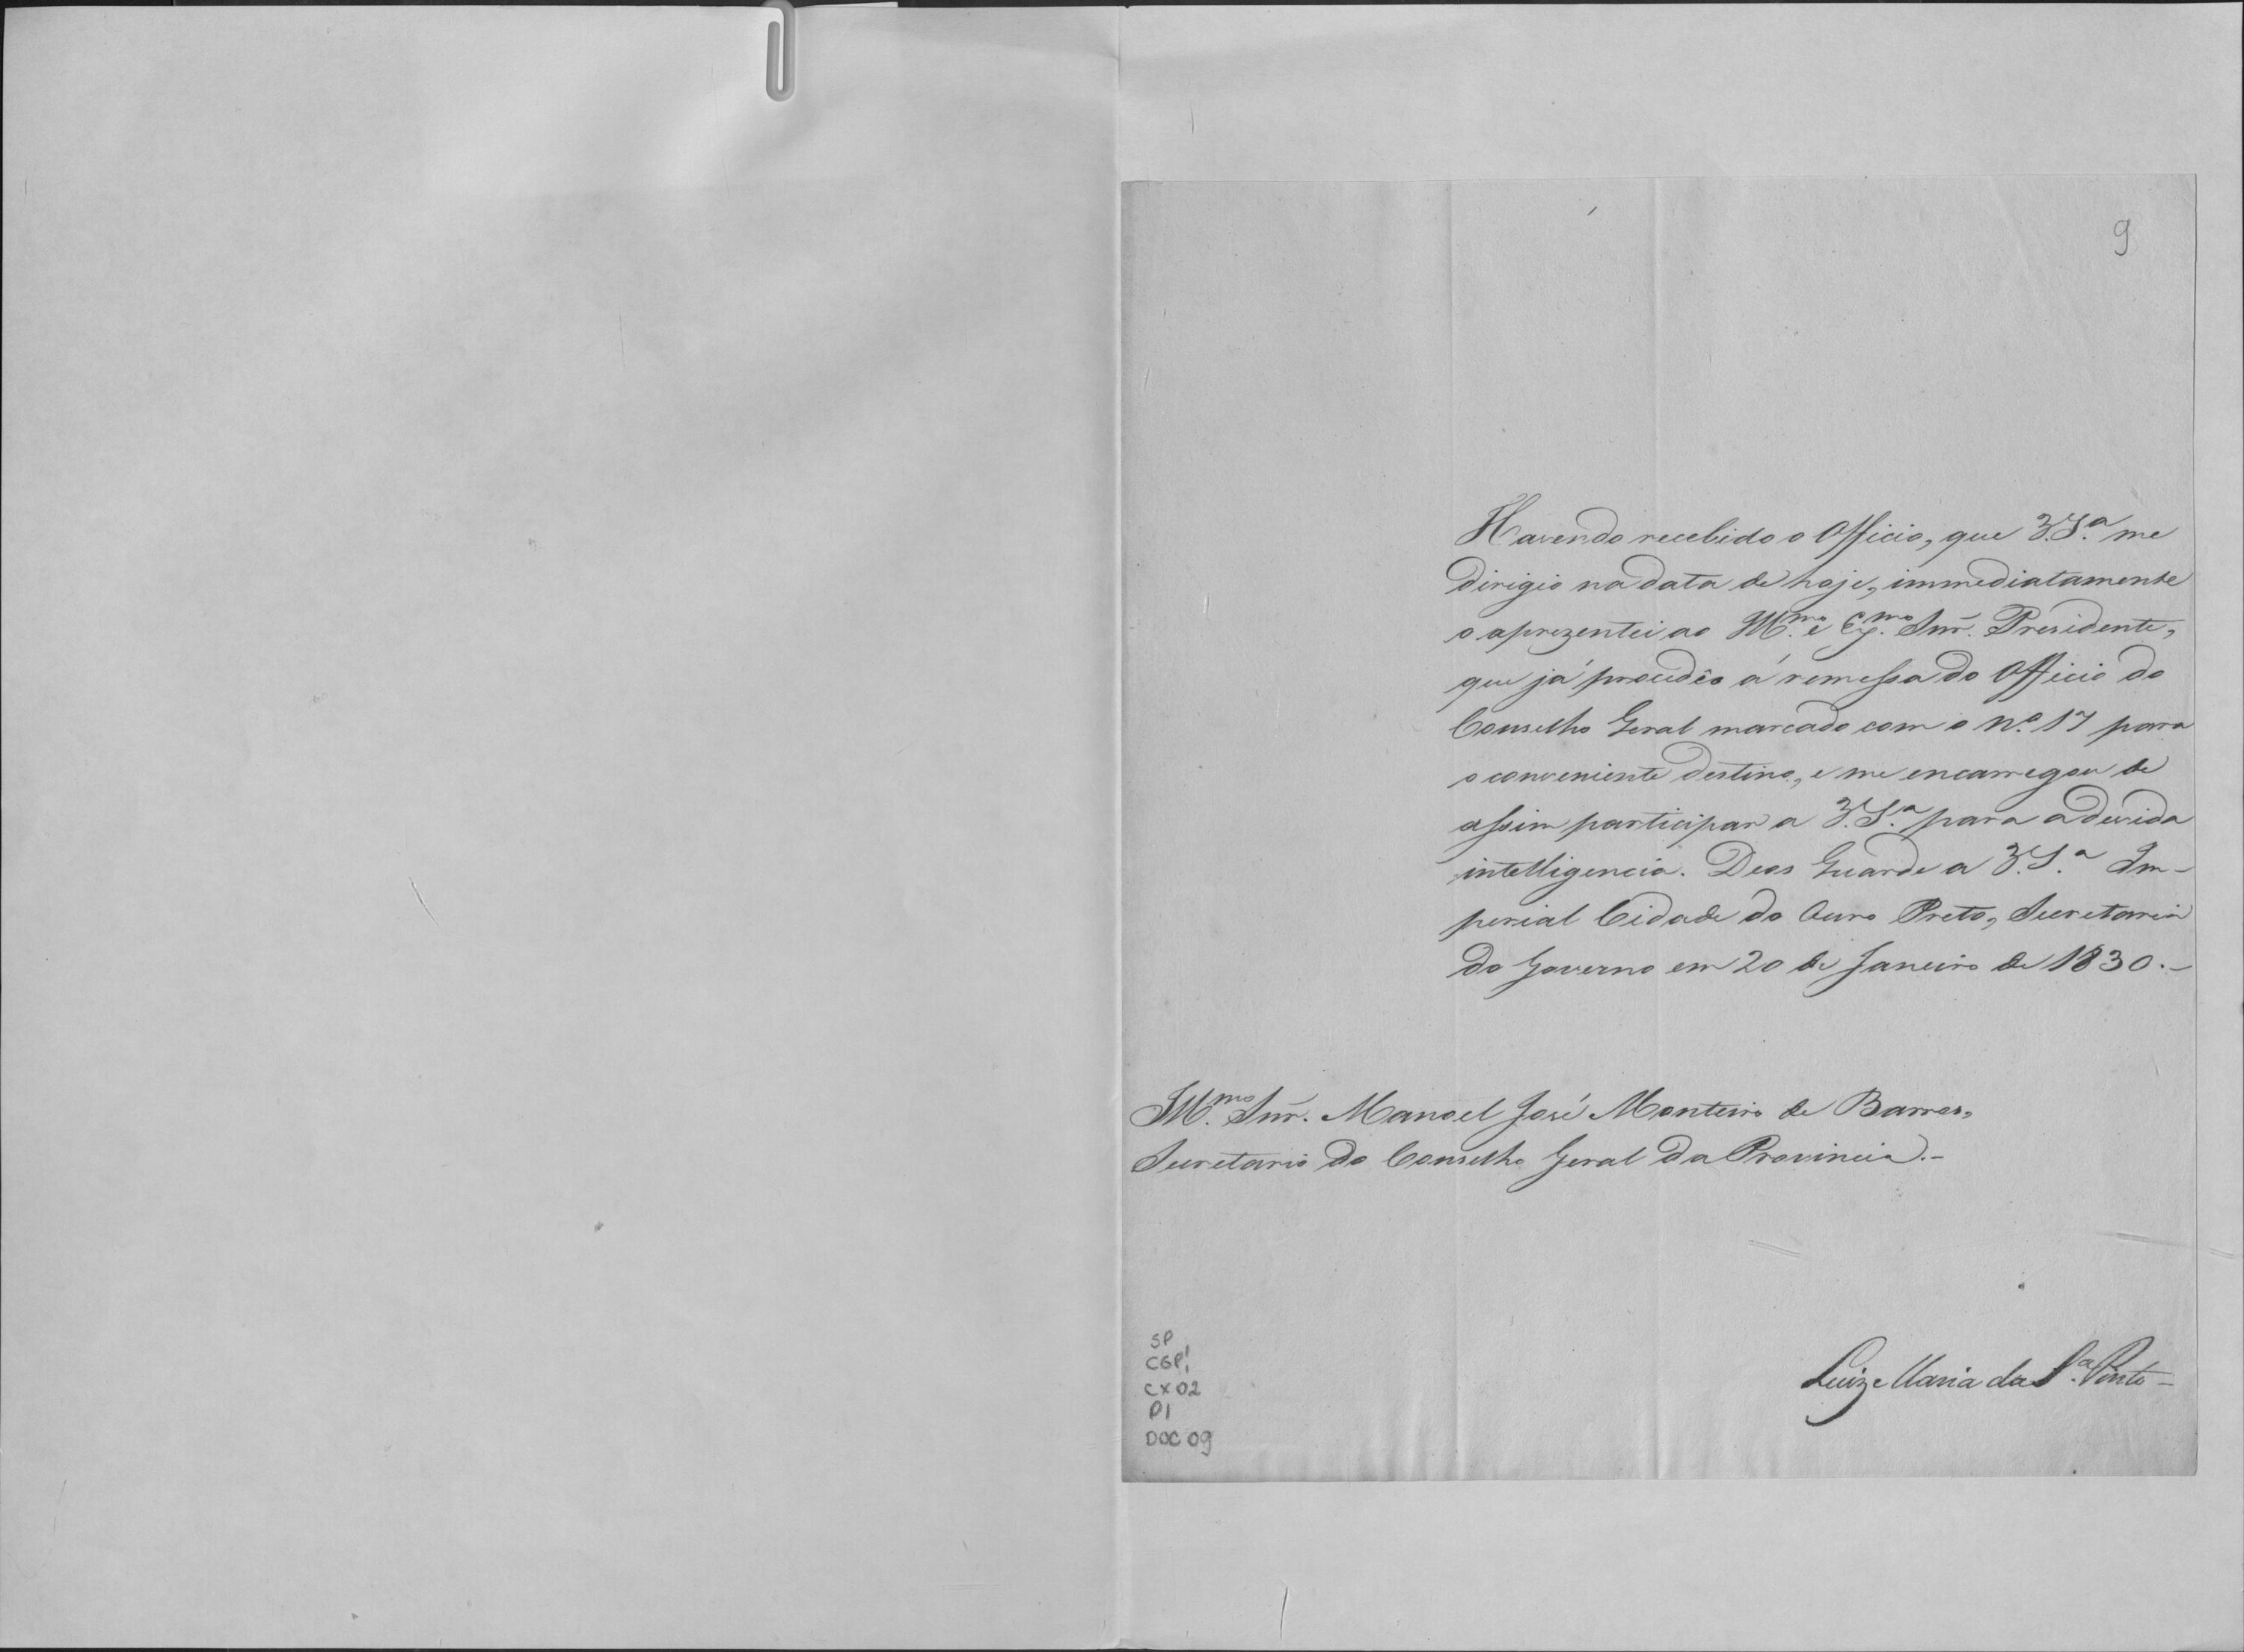 9
Havendo recebido o Officio, que V.S.ª me
dirigio na data de hoje, immediatamente
o aprezentei ao Ill.mo e Ex.mo Snr. Presidente,
que já procedêo á remessa do Officio do
Conselho Geral marcado com o Nº. 17 para
o conveniente destino, e me encarregou de
assim participar a V.S.ª para a devida
intelligencia. Deos Guarde a V.S.ª Im-
perial Cidade do Ouro Preto, Secretaria
do Governo em 20 de Janeiro de 1830.-
Ill.mo Snr. Manoel José Monteiro de Barros,
Secretario do Conselho Geral da Provincia.-
Luiz Maria da S.ª Pinto-
SP
CGP1
CX02
P1
DOC 09